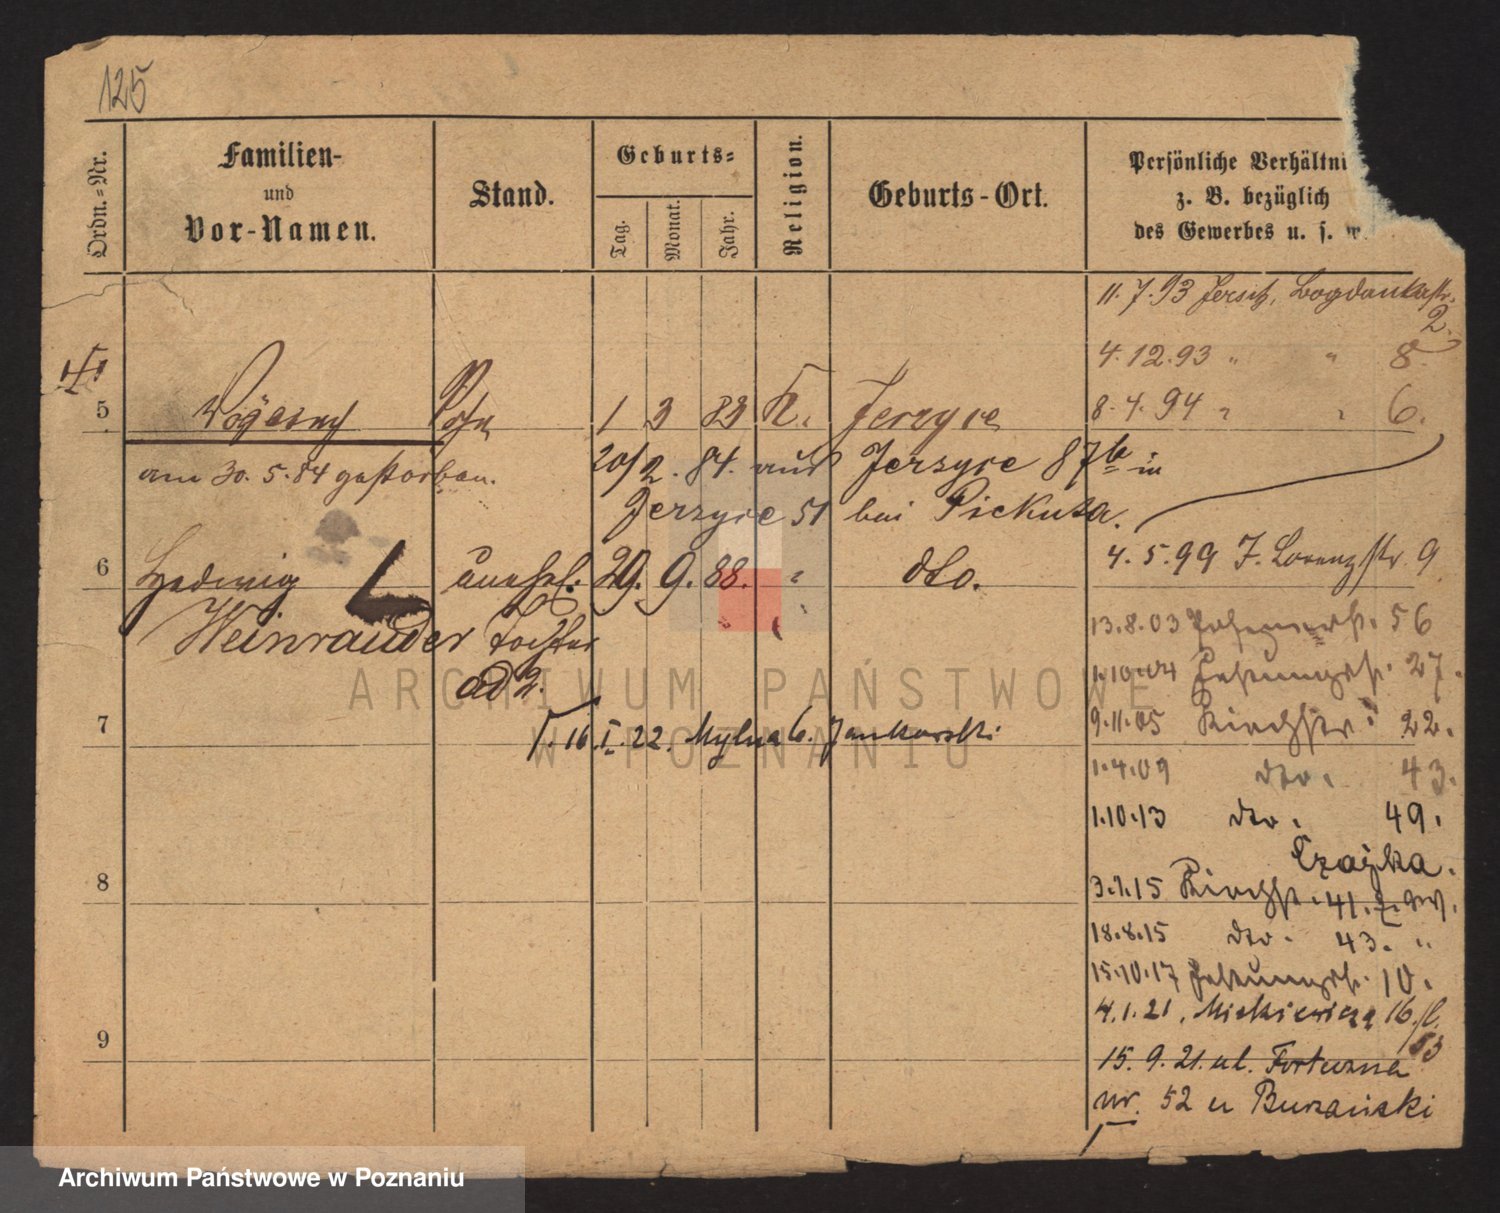 125
Ordn.-Nr.
Familien-
und
Vor-Namen.
Stand.
Geburts-
Tag.
Monat.
Jahr.
Religion.
Geburts-Ort.
Persönliche Verhältni
z. B. bezüglich
des Gewerbes u. s. w.
11.7.93 Jersitz, Bogdankastr.
2.
4.12.93 " " 8.
5 Sohn 1 3 83 K. Jerzyce 8.4.94 " " 6.
am 30.5.84 gestorben.
20/2.84. aus Jerzyce 87b in
Jerzyce 51 bei Piekuta.
4.5.99 J. Lorenzstr. 9
6 Hedwig unehel. 29. 9. 88. " dto.
Weinrauder Tochter
ad 2.
13.8.03 56
1.10.04 Festungstr. 27.
9.11.05 Kirchstr. 22.
7 16.I.22. Mylna 6. Jankowski
1.4.09 dto. 43.
1.10.13 dto. 49.
Czajka.
8 3.1.15 Kirchstr. 41.
18.8.15 dto. 43. "
15.10.17 Festungstr. 10.
4.1.21. Mickiewicza 16/
53
9
15.9.21. ul. Fortuzna
nr. 52 u Burzański
ARCHIWUM PAŃSTWOWE
W POZNANIU
Archiwum Państwowe w Poznaniu